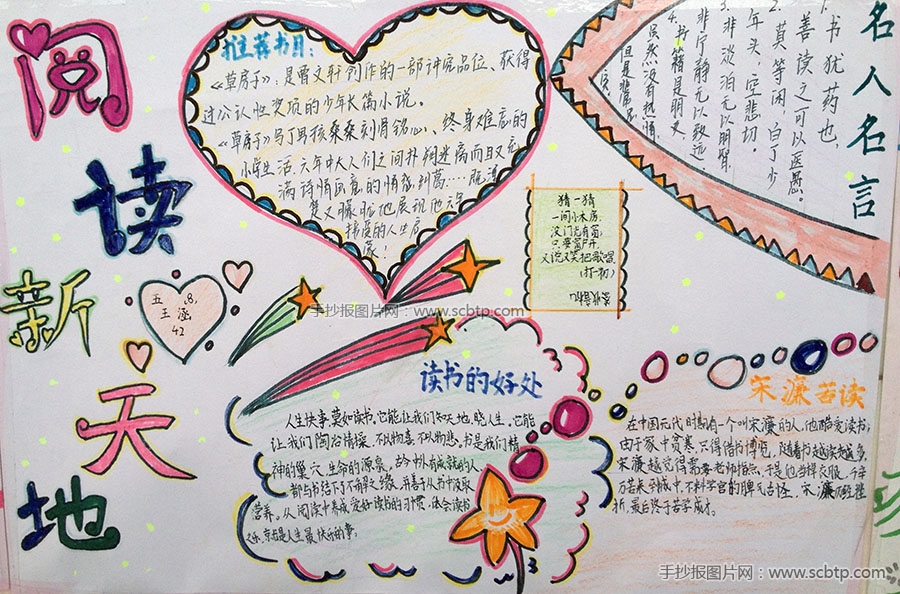 阅读新天地
推荐书目:
《草房子》:是曹文轩创作的一部讲究品位、获得
过公认性奖项的少年长篇小说。
《草房子》写了男孩桑桑刻骨铭心、终身难忘的
小学生活。六年中
满诗情画意的情感
地展现他六年
名人名言
1.书犹药也,
善读之可以医愚。
2.莫等闲,白了少
年头,空悲切。
3.非淡泊无以明智,
非宁静无以致远。
4.书籍是朋友,
虽然没有热情,
但是非常
猜一猜
一间小木房,
没门光有窗,
只要窗户开,
又说又笑把歌唱
(打一物)
手抄报图片网:www.scbtp.com
五
王涵
42
读书的好处
人生快事莫如读书,它能让我们知天地,晓人生,它能
让我们陶冶情操,不以物喜,不以物悲,书是我们精
神的巢穴,生命的源泉,古今中外有成就的人
都与书结下了不解之缘,并善于从书中汲取
营养。从阅读中养成爱好读书的习惯,体会读书
人生最快乐的事。
宋濂苦读
在中国元代时期有一个叫宋濂的人,他酷爱读书,
由于家中贫寒,只得借书博览,随着书越读越多,
宋濂越觉得需要老师指点,于是
挫
折,最后终于苦学成才。
手抄报图片网:www.scbtp.com